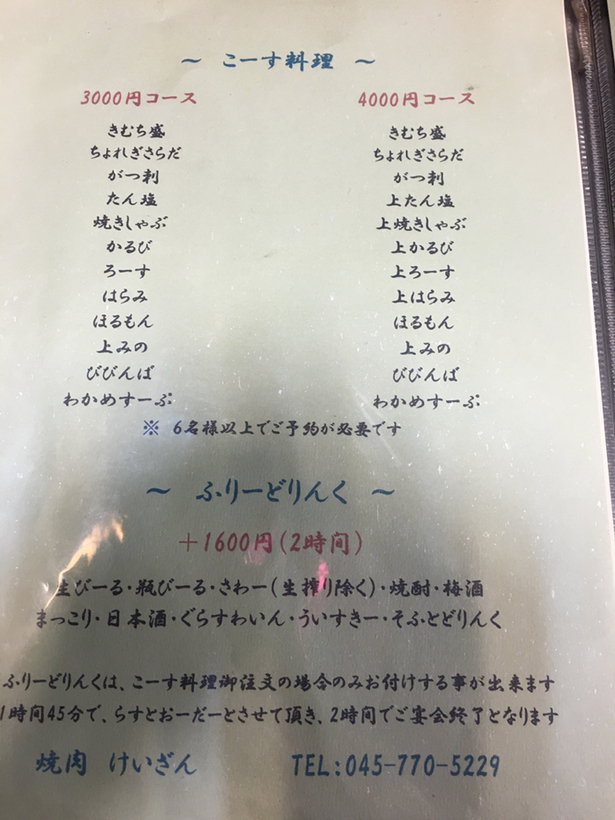 ～ こーす料理 ～
3000円コース
きむち盛
ちょれぎさらだ
がつ刺
たん塩
焼きしゃぶ
かるび
ろーす
はらみ
ほるもん
上みの
びびんば
わかめすーぷ
4000円コース
きむち盛
ちょれぎさらだ
がつ刺
上たん塩
上焼きしゃぶ
上かるび
上ろーす
上はらみ
ほるもん
上みの
びびんば
わかめすーぷ
※ 6名様以上でご予約が必要です
～ ふりーどりんく ～
＋1600円(2時間)
生びーる・瓶びーる・さわー(生搾り除く)・焼酎・梅酒
まっこり・日本酒・ぐらすわいん・ういすきー・そふとどりんく
ふりーどりんくは、こーす料理御注文の場合のみお付けする事が出来ます
1時間45分で、らすとおーだーとさせて頂き、2時間でご宴会終了となります
焼肉 けいざん TEL:045-770-5229